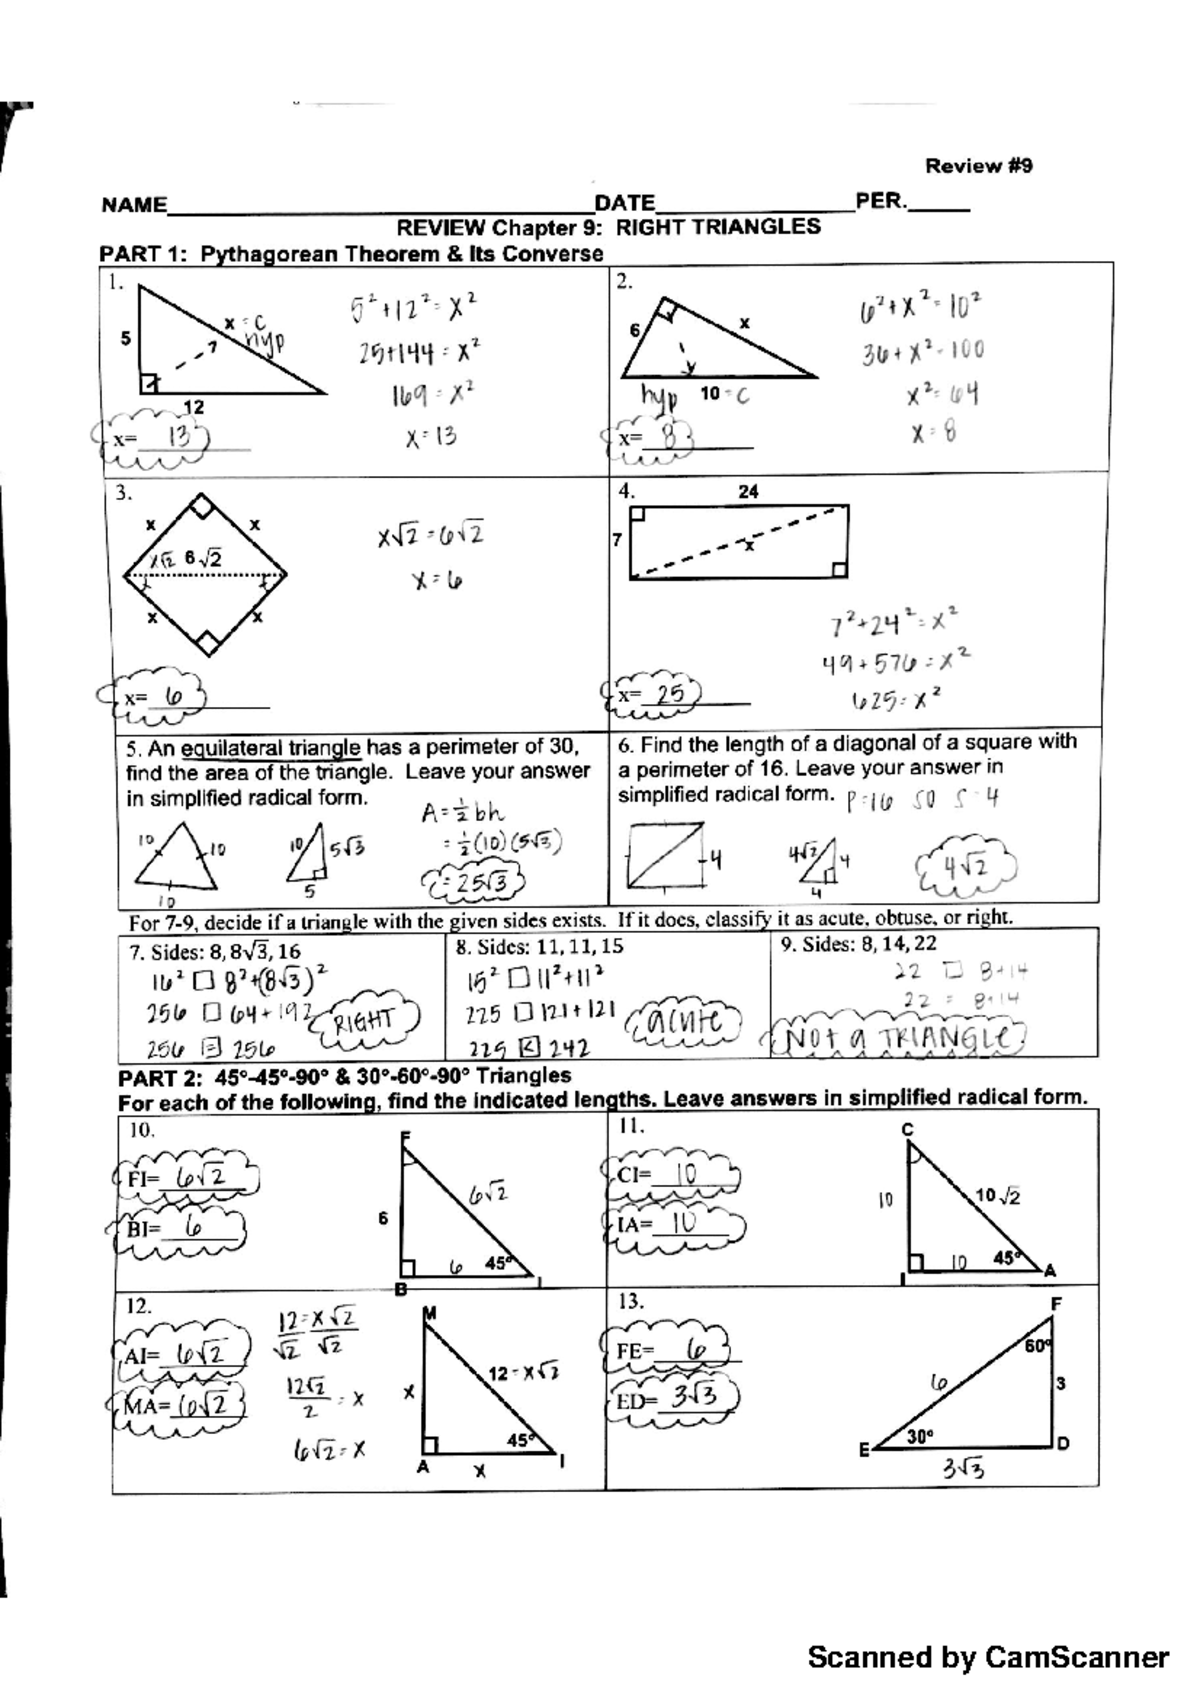 Review #9
NAME DATE PER.
REVIEW Chapter 9: RIGHT TRIANGLES
PART 1: Pythagorean Theorem & Its Converse
1.
5
x = c
hyp
12
5² + 12² = x²
25 + 144 = x²
169 = x²
x = 13
x= 13
2.
6
x
hyp 10 = c
6² + x² = 10²
36 + x² = 100
x² = 64
x = 8
x= 8
3.
x x
x√2 6√2
x x
x√2 = 6√2
x = 6
x= 6
4.
24
7
x
7² + 24² = x²
49 + 576 = x²
625 = x²
x= 25
5. An equilateral triangle has a perimeter of 30,
find the area of the triangle. Leave your answer
in simplified radical form.
10 10
10
10 5√3
5
A = ½ bh
= ½ (10) (5√3)
= 25√3
6. Find the length of a diagonal of a square with
a perimeter of 16. Leave your answer in
simplified radical form. P = 16 so s = 4
4
4√2 4
4
4√2
For 7-9, decide if a triangle with the given sides exists. If it does, classify it as acute, obtuse, or right.
7. Sides: 8, 8√3, 16
16² □ 8² + (8√3)²
256 □ 64 + 192
256 = 256
RIGHT
8. Sides: 11, 11, 15
15² □ 11² + 11²
225 □ 121 + 121
225 < 242
acute
9. Sides: 8, 14, 22
22 □ 8 + 14
22 = 8 + 14
NOT a TRIANGLE
PART 2: 45°-45°-90° & 30°-60°-90° Triangles
For each of the following, find the indicated lengths. Leave answers in simplified radical form.
10.
FI= 6√2
BI= 6
F
6√2
6
6 45°
B I
11.
CI= 10
IA= 10
C
10 10√2
10 45°
I A
12.
AI= 6√2
MA= 6√2
12 = x√2
√2 √2
12√2 = x
2
6√2 = x
M
12 = x√2
x
45°
A x I
13.
FE= 6
ED= 3√3
F
60°
6 3
E 30° D
3√3
Scanned by CamScanner